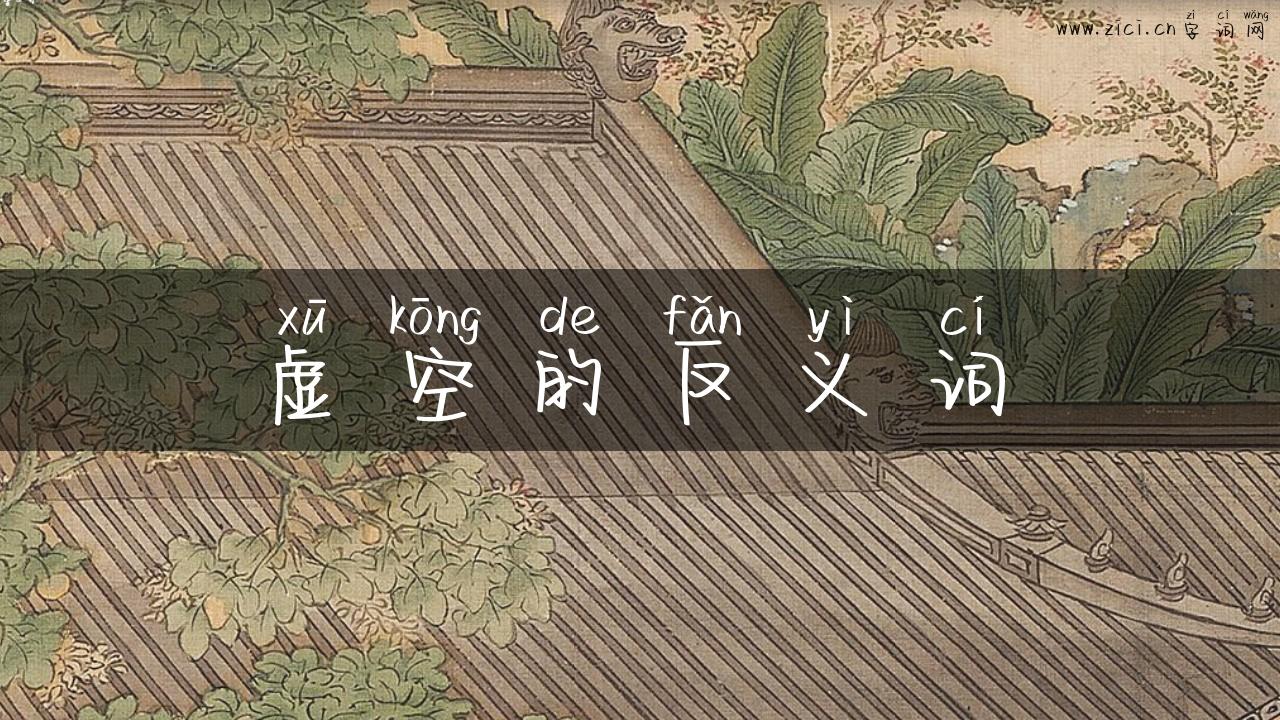 zì cí wǎng
www.zici.cn 字 词 网
xū kōng de fǎn yì cí
虚 空 的 反 义 词